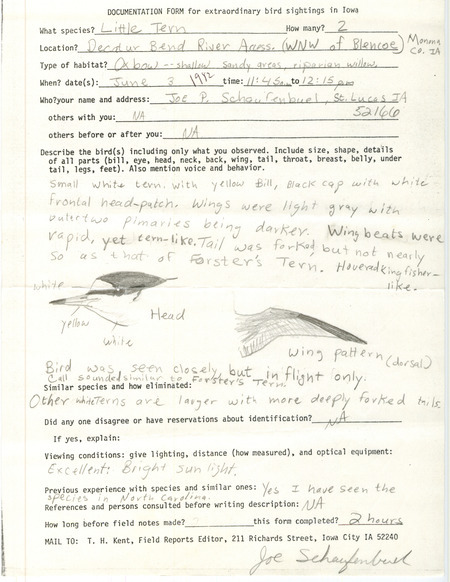 DOCUMENTATION FORM for extraordinary bird sightings in Iowa
What species? Little Tern How many? 2
Location? Decatur Bend River Access. (WNW of Blencoe) Monona Co. IA
Type of habitat? Oxbow -- shallow sandy areas, riparian willow.
When? date(s): June 3 1992 time: 11:45am to 12:15 pm
Who? your name and address: Joe P. Schaufenbuel, St. Lucas IA
others with you: NA 52166
others before or after you: NA
Describe the bird(s) including only what you observed. Include size, shape, details
of all parts (bill, eye, head, neck, back, wing, tail, throat, breast, belly, under
tail, legs, feet). Also mention voice and behavior.
Small white tern. with yellow Bill, Black cap with white
frontal head-patch. Wings were light gray with
outer two pimaries being darker. Wing beats were
rapid, yet tern-like. Tail was forked, but not nearly
so as that of Forster's Tern. Hovered kingfisher-
like.
white
yellow
white
Head
Wing pattern (dorsal)
Bird was seen closely but in flight only.
Call sounded similar to Forster's Tern.
Similar species and how eliminated:
Other white Terns are larger with more deeply forked tails.
Did any one disagree or have reservations about identification? NA
If yes, explain:
Viewing conditions: give lighting, distance (how measured), and optical equipment:
Excellent: Bright sun light.
Previous experience with species and similar ones: Yes I have seen the
species in North Carolina.
References and persons consulted before writing description: NA
How long before field notes made? this form completed? 2 hours
MAIL TO: T. H. Kent, Field Reports Editor, 211 Richards Street, Iowa City IA 52240
Joe Schaufenbuel